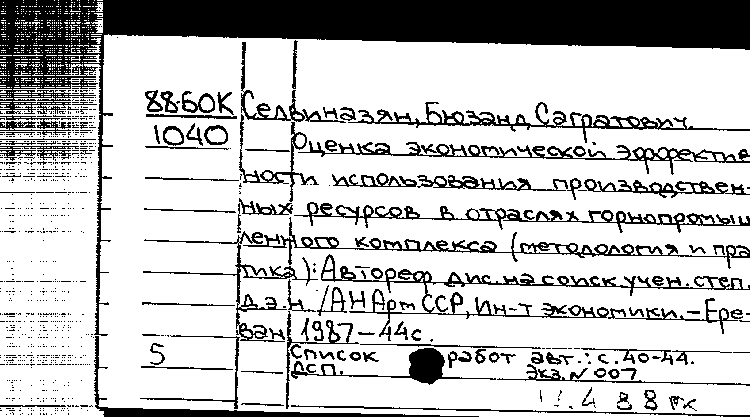 88-60К Сельвиназян, Бюзанд Сагратович.
1040 Оценка экономической эффектив
ности использования производствен-
ных ресурсов в отраслях горнопромыш
ленного комплекса (методология и пра
тика): Автореф. дис. на соиск. учен. степ.
д.э.н. /АН Арм ССР, Ин-т экономики. - Ере-
ван 1987 - 44с.
5 Список работ авт.: с. 40-44.
ДСП. Экз. N 007
4 88